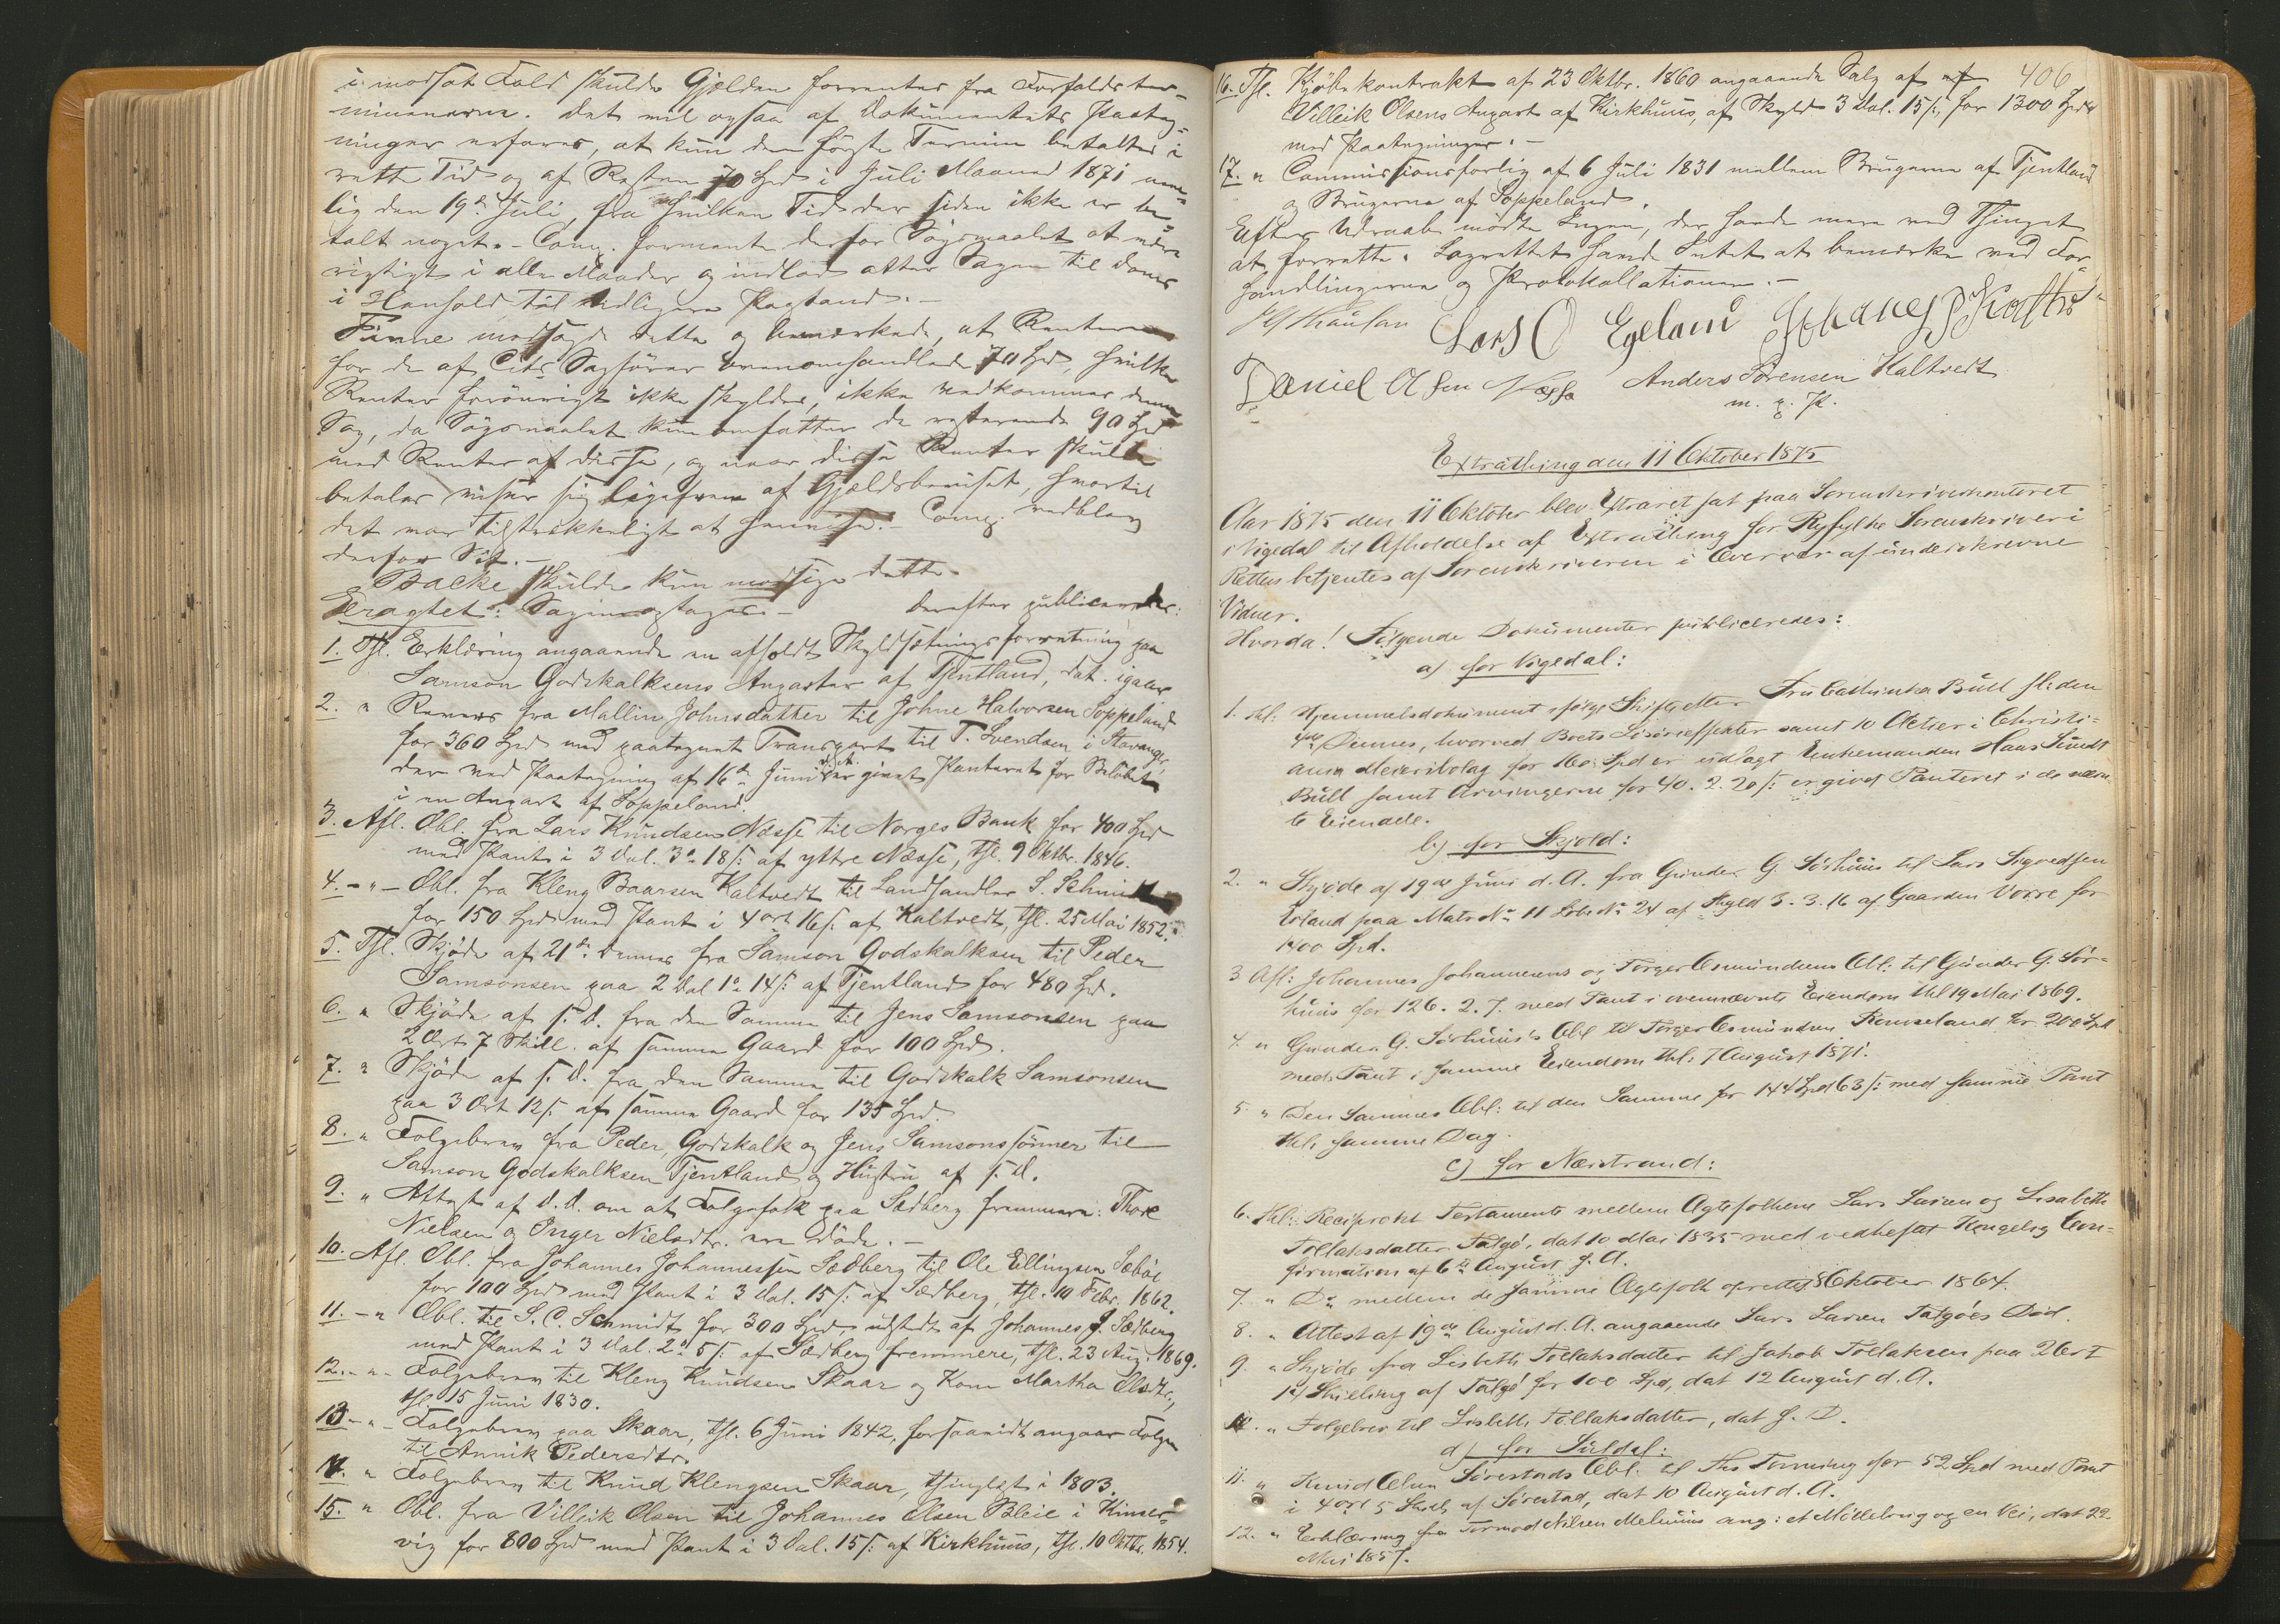 i modsat Fald skulde Gjælden forrentes fra Forfaldster-
minerne. Det vil ogsaa af Dokumentets Paateg-
ninger erfares, at kun den første Termin betaltes i
rette Tid og af Resten 70 Spd i Juli Maaned 1871 nem-
lig den 19de Juli, fra hvilken Tid der siden ikke er be-
talt noget. - Comp. formente derfor Søgsmaalet at være
rigtigt i alle Maader og indlod atter Sagen til Doms
i Henhold til tidligere Paastand. -
Finne modsagde dette og bemærkede, at Renterne
for de af Cits Sagfører ovenomhandlede 70 Spd, hvilke
Renter forøvrigt ikke skyldes, ikke vedkommer denne
Sag, da Søgsmaalet kun omfatter de resterende 90 Spd
med Renter af disse, og naar disse Renter skulle
betales viser sig ligefrem af Gjældsbeviset, hvortil
det var tilstrækkeligt at henvise. - Comp. vedblev
derfor Sit. -
Backe skulde kun modsige dette.
Eragtet: Sagen optages. - Derefter publiceredes:
1. Thl. Erklæring angaaende en afholdt Skyldsætningsforretning paa
Samson Godskalksens Anparter af Tjentland, dat. igaar
2. " Revers fra Mallin Johnsdatter til Johne Halvorsen Soppeland
for 360 Spd med paategnet Transport til T. Svendsen i Stavanger,
der ved Paategning af 16de Juni d. A. er givet Panteret for Beløbet
i en Anpart af Soppeland.
3. Afl. Obl. fra Lars Knudsen Næsse til Norges Bank for 400 Spd
med Pant i 3 Dal. 3 " 18 s: af yttre Næsse, thl. 9 Oktbr. 1846.
4. - " - Obl. fra Kleng Baarsen Kaltvedt til Landhandler S. Schmidt
for 150 Spd med Pant i 4 ort 16 s: af Kaltvedt, thl. 25 Mai 1852.
5. Thl. Skjøde af 21de dennes fra Samson Godskalksen til Peder
Samsonsen paa 2 Dal 1 " 14 s: af Tjentland for 480 Spd.
6. " Skjøde af s. D. fra den Samme til Jens Samsonsen paa
2 Ort 7 Skill. af samme Gaard for 100 Spd.
7. " Skjøde af s. D. fra den Samme til Godskalk Samsonsen
paa 3 Ort 12 s: af samme Gaard for 135 Spd
8. " Folgebrev fra Peder, Godskalk og Jens Samsonssønner til
Samson Godskalksen Tjentland og Hustru af s. D.
9. " Attest af D. D. om at Folgefolk paa Sædberg fremmere: Thore
Nielsen og Inger Nielsdtr. ere døde. -
10. Afl. Obl. fra Johannes Johannessen Sædberg til Ole Ellingsen Sæbøe
for 100 Spd med Pant i 3 Dal. 15 s: af Sædberg, thl. 10 Febr. 1862.
11. - " Obl. til S. C. Schmidt for 300 Spd udstedt af Johannes J. Sædberg
med Pant i 3 Dal. 2 " 5 s: af Sædberg fremmere, thl. 23 Aug. 1869.
12. - " - Folgebrev til Kleng Knudsen Skaar og Kone Martha Olsdtr.,
thl. 15 Juni 1830.
13. - " - Folgebrev paa Skaar, thl. 6 Juni 1842, forsaavidt angaar Folgen
til Annik Pedersdtr.
14. " Folgebrev til Knud Klengsen Skaar, thinglæst i 1803.
15. " Obl. fra Villeik Olsen til Johannes Olsen Bleie i Kinser-
vig for 800 Spd med Pant i 3 Dal. 15 s: af Kirkhuus, thl. 10 Oktbr. 1854.
406
16. Thl. Kjøbekontrakt af 23 Oktbr. 1860 angaaende Salg af af
Villeik Olsens Anpart af Kirkhuus, af Skyld 3 Dal. 15 s:, for 1300 Spd
med Paategninger. -
17. " Commissionsforlig af 6 Juli 1831 mellem Brugerne af Tjentland
og Brugerne af Soppeland.
Efter Udraab mødte Ingen, der havde mere ved Thinget
at forrette. Lagrettet havde Intet at bemærke ved For-
handlingerne og Protokollationen. -
Lars O Egeland
Daniel Olsen Næsse Anders Sørensen Kaltvedt
m. p. P.
Extrathing den 11 Oktober 1875
Aar 1875 den 11 Oktober blev Extraret sat paa Sorenskriverkontoret
i Vigedal til Afholdelse af Extrathing for Ryfylke Sorenskriveri
Retten betjentes af Sorenskriveren i Overvær af underskrevne
Vidner.
Hvorda! Følgende Dokumenter publiceredes:
a) for Vigedal:
1. thl: Hjemmelsdokument ifølge Skifte efter Fru Cathinka Bull sluttet den
Dennes, hvorved Boets Løsøreeffekter samt 10 Actier i Christi-
ania Meieribolag for 160 Spd er udlagt Enkemanden Hans Sundt
Bull samt Arvingerne for 40. 2. 20 s: er givet Panteret i de nævn
te Eiendele.
b) for Skjold:
2. " Skjøde af 19de Juni d. A. fra Gunder G. Sørhuus til Lars Sigvedsen
Erland paa Matr No 11 Lobe No 24 af Skyld 3. 3. 16 af Gaarden Vorre for
1400 Spd.
3 Afl: Johannes Johannesens og Torger Osmundsens Obl: til Gunder G. Sør-
huus for 126. 2. 7. med Pant i ovennævnte Eiendom thl 19 Mai 1869.
4. " Gunder G. Sørhuus's Obl til Torger Osmundsen Ramseland for 200 Spd
med Pant i samme Eiendom thl: 7 August 1871.
5. " Den Sammes Obl: til den Samme for 144 Spd 63 s: med samme Pant
thl. samme Dag.
c) for Nærstrand:
6. thl: Reciprokt Testamente mellem Ægtefolkene Lars Larsen og Lisabeth
Tollaksdatter Talgø, dat 10 Mai 1835 med vedheftet Kongelig Con-
firmation af 6te August s. A.
7. " Do mellem de samme Ægtefolk oprettet 8 Oktober 1864.
8. " Attest af 19de August d. A. angaaende Lars Larsen Talgøes Død.
9. " Skjøde fra Lisbeth Tollaksdatter til Jakob Tollaksen paa 2 Ort
12 Skilling af Talgø for 100 Spd, dat 12 August d. A.
10. " Folgebrev til Lisbeth Tollaksdatter, dat s. D.
d) for Suldal:
11. " Knud Olsen Sørestads Obl: til Ths Tornning for 52 Spd med Pant
i 4 ort 5 Skill af Sørestad, dat 10 August d. A.
12. " Erklæring fra Tormod Nilsen Mehuus ang: et Møllebrug og en Vei, dat 22
Mai 1857.